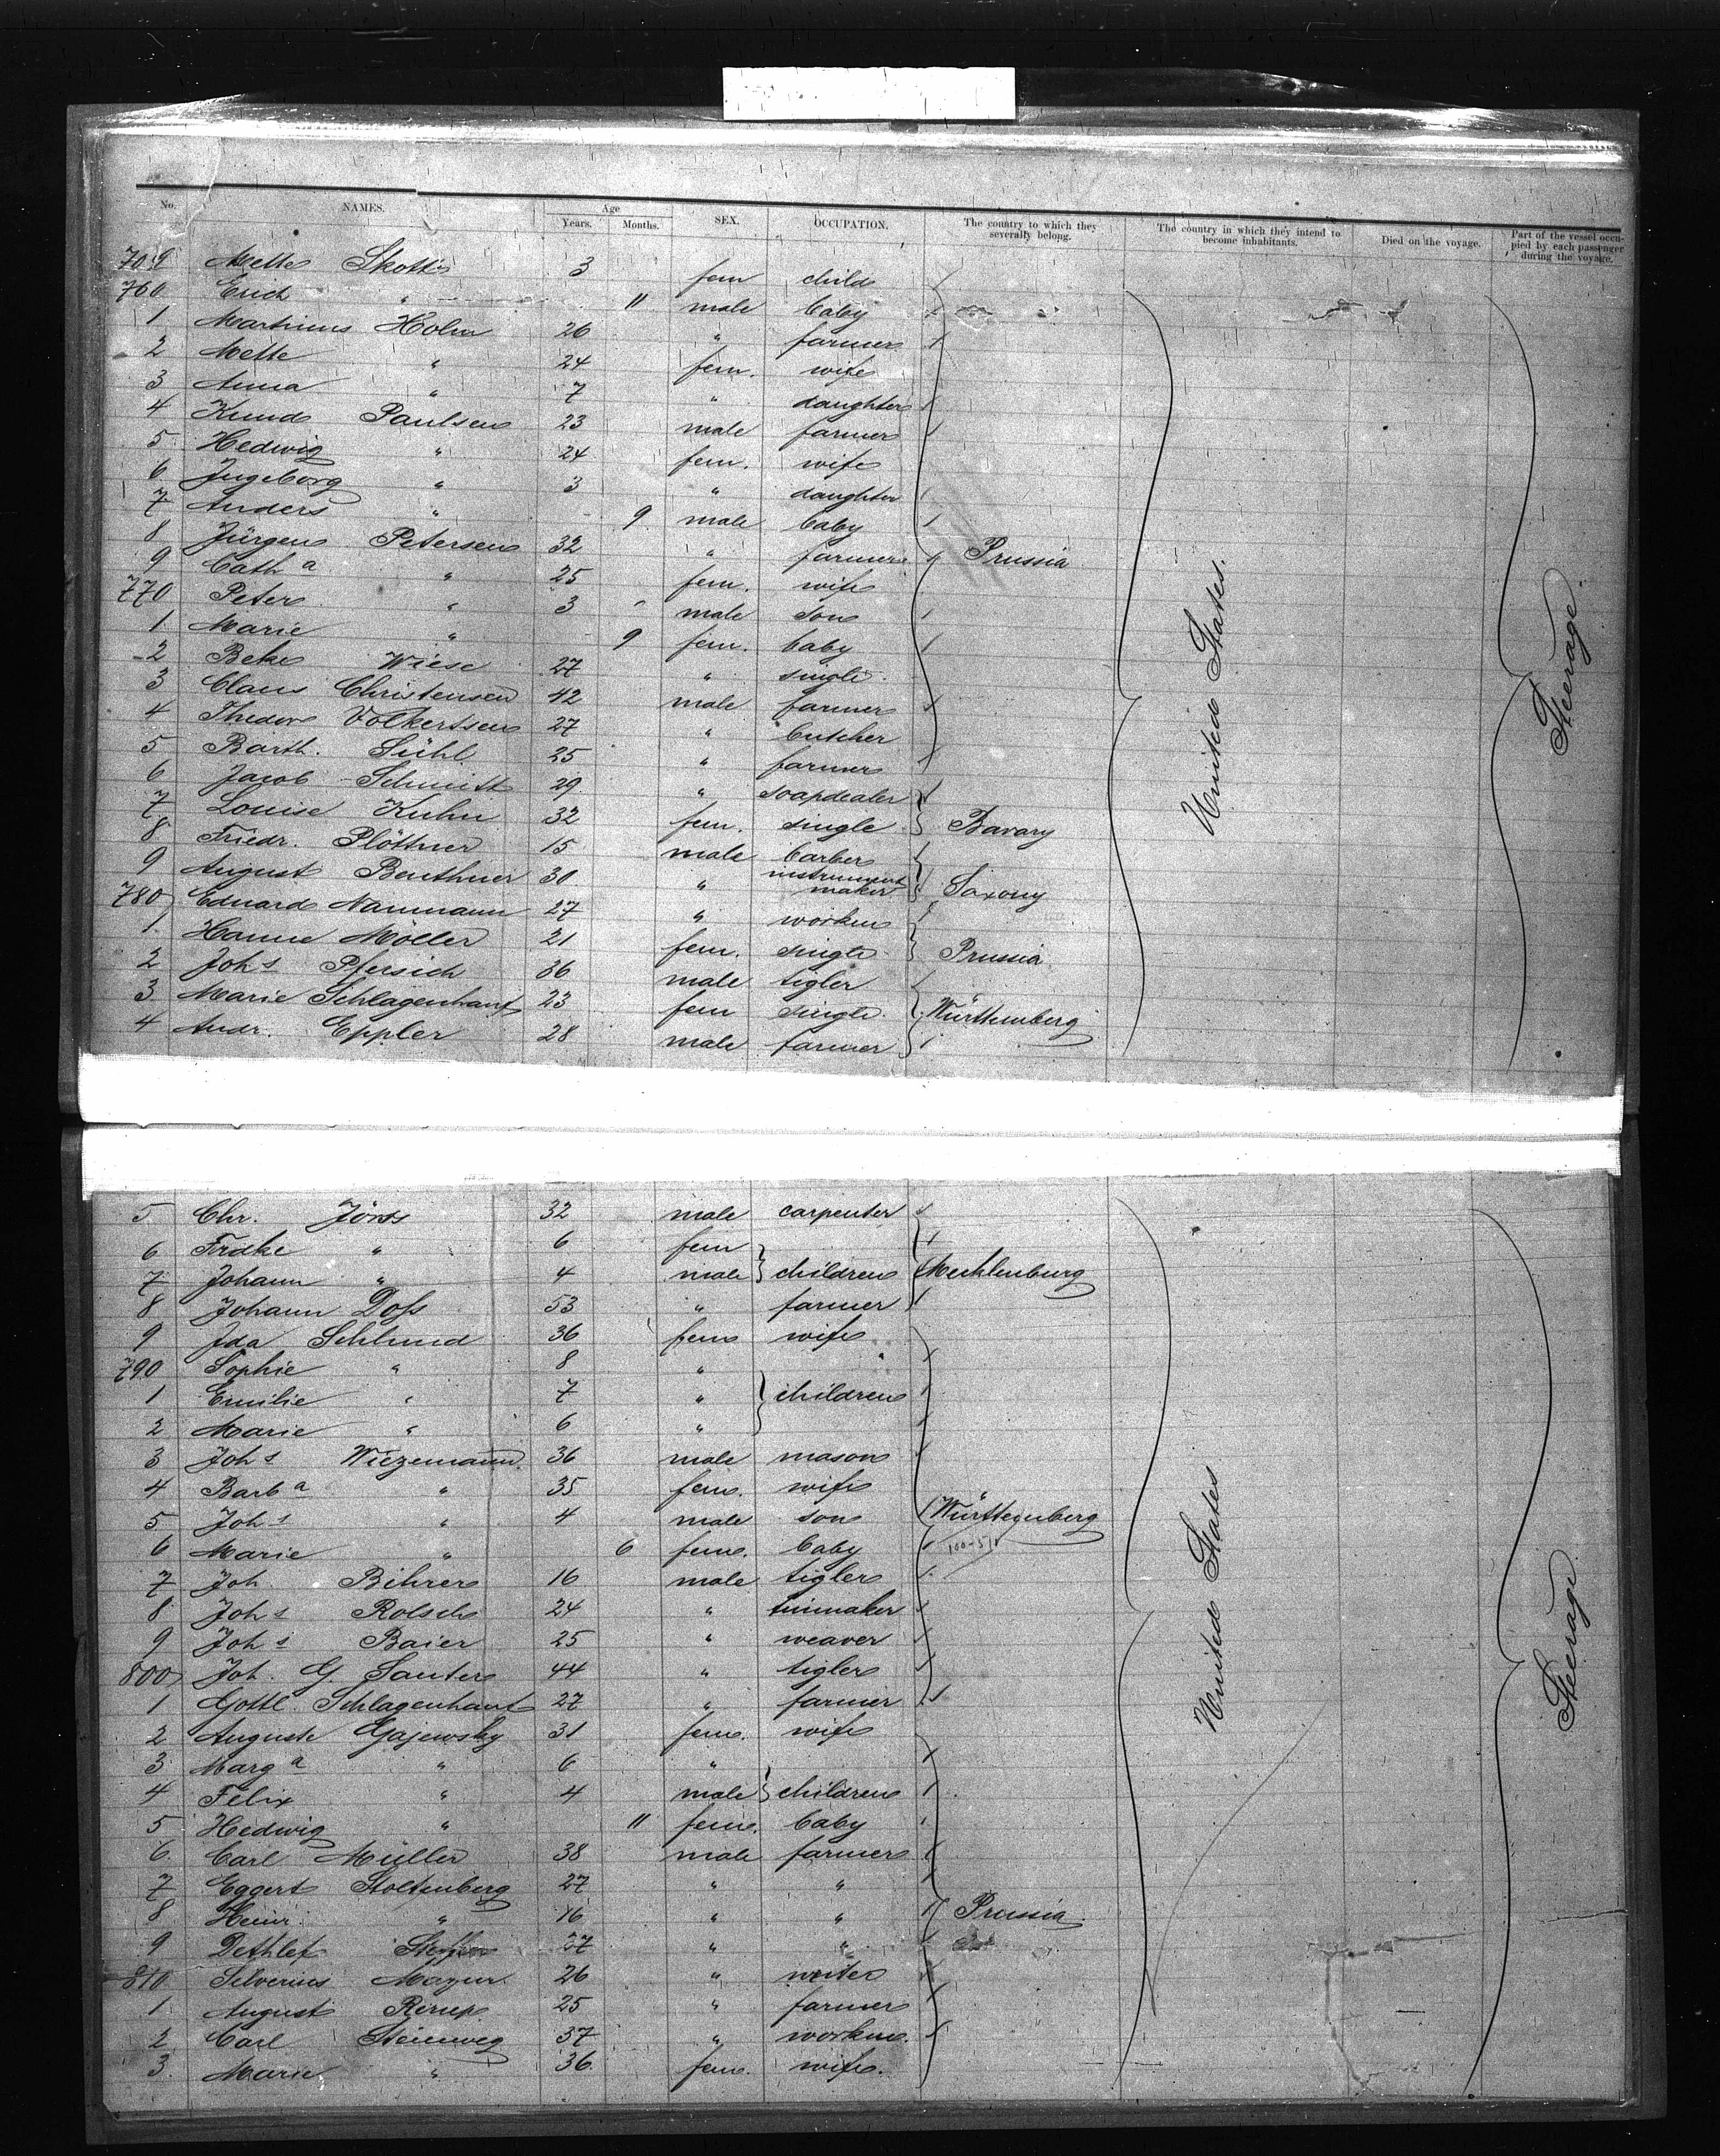 No. NAMES. Age Years. Months. SEX. OCCUPATION. The country to which they severally belong. The country in which they intend to become inhabitants. Died on the voyage. Part of the vessel occupied by each passenger during the voyage.
Mette 3 fem child
760 Erich " 11 male baby
1 Martinus Holm 26 " farmer
2 Mette " 24 fem. wife
3 Anna " 7 " daughter
4 Knud Paulsen 23 male farmer
5 Hedwig " 24 fem. wife
6 Ingeborg " 3 " daughter
7 Anders " 9 male baby
8 Jürgen Petersen 32 " farmer Prussia
9 Cath a " 25 fem. wife
770 Peter " 3 male son
1 Marie " 9 fem. baby
2 Beke Wiese 27 " single
3 Claus Christensen 42 male farmer
4 Theodor Volkertsen 27 " butcher
5 Barth. Sühl 25 " farmer
6 Jacob Schmitt 29 " soapdealer
7 Louise Kuhn 32 fem. single Bavary
8 Friedr. Plöttner 15 male barber
9 August Beuthner 30 " instrument maker Saxony
780 Eduard Naumann 27 " workm
1 Hanne Möller 21 fem. single Prussia
2 Joh s Pfersich 36 male tigler
3 Marie Schlagenhauf 23 fem single Württemberg
4 Andr. Eppler 28 male farmer
United States.
Steerage
5 Chr. Jörss 32 male carpenter
6 Fridke " 6 fem
7 Johann " 4 male children Mecklenburg
8 Johann Doss 53 " farmer
9 Ida Schlund 36 fem wife
790 Sophie " 8 "
1 Emilie " 7 " children
2 Marie " 6 "
3 Joh s Wiezemann 36 male mason
4 Barb a " 35 fem. wife
5 Joh s " 4 male son Württemberg
6 Marie " 6 fem. baby
7 Joh. Bihrer 16 male tigler
8 Joh s Rolsch 24 " tinmaker
9 Joh s Baier 25 " weaver
800 Joh. G. Sauter 44 " tigler
1 Gottl. Schlagenhauf 27 " farmer
2 Auguste Gajewsky 31 fem. wife
3 Marg a " 6 "
4 Felix " 4 male children
5 Hedwig " 11 fem. baby
6 Carl Müller 38 male farmer
7 Eggert Stoltenberg 27 " "
8 Heinr. " 16 " " Prussia
9 Dethlef 27 " "
810 Silverius Mazur 26 " writer
1 August 25 " farmer
2 Carl Steinweg 37 " workm.
3 Marie " 36 fem. wife.
United States
Steerage